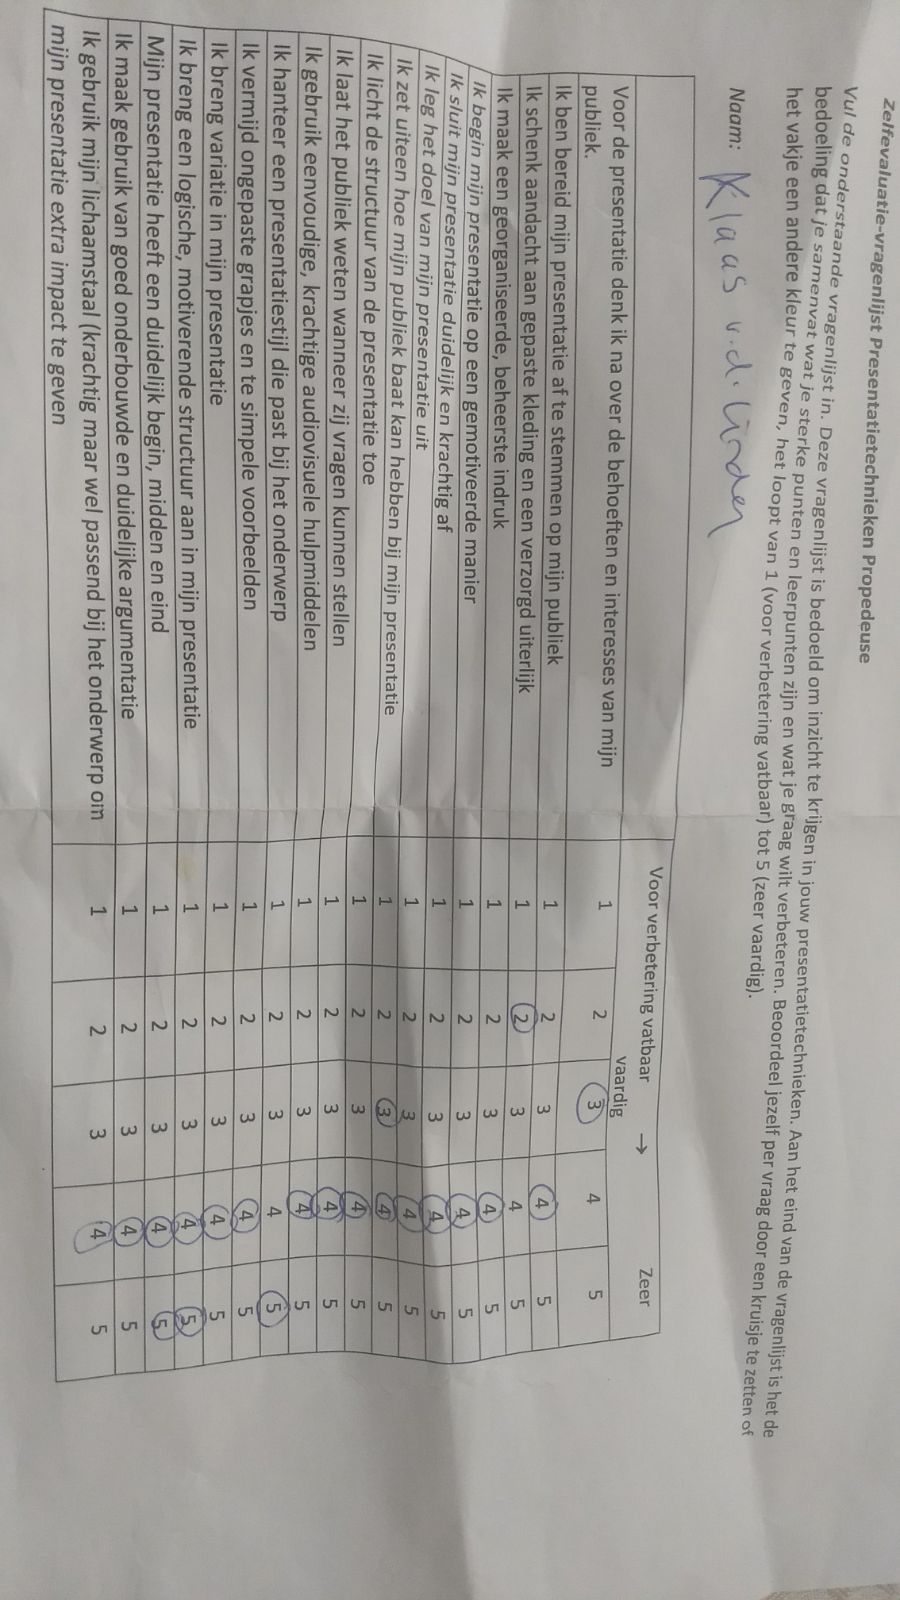 Zelfevaluatie-vragenlijst Presentatietechnieken Propedeuse
Vul de onderstaande vragenlijst in. Deze vragenlijst is bedoeld om inzicht te krijgen in jouw presentatietechnieken. Aan het eind van de vragenlijst is het de
bedoeling dat je samenvat wat je sterke punten en leerpunten zijn en wat je graag wilt verbeteren. Beoordeel jezelf per vraag door een kruisje te zetten of
het vakje een andere kleur te geven, het loopt van 1 (voor verbetering vatbaar) tot 5 (zeer vaardig).
Naam: Klaas v.d. Linden
Voor verbetering vatbaar → Zeer
vaardig
Voor de presentatie denk ik na over de behoeften en interesses van mijn 1 2 3 4 5
publiek.
Ik ben bereid mijn presentatie af te stemmen op mijn publiek 1 2 3 4 5
Ik schenk aandacht aan gepaste kleding en een verzorgd uiterlijk 1 2 3 4 5
Ik maak een georganiseerde, beheerste indruk 1 2 3 4 5
Ik begin mijn presentatie op een gemotiveerde manier 1 2 3 4 5
Ik sluit mijn presentatie duidelijk en krachtig af 1 2 3 4 5
Ik leg het doel van mijn presentatie uit 1 2 3 4 5
Ik zet uiteen hoe mijn publiek baat kan hebben bij mijn presentatie 1 2 3 4 5
Ik licht de structuur van de presentatie toe 1 2 3 4 5
Ik laat het publiek weten wanneer zij vragen kunnen stellen 1 2 3 4 5
Ik gebruik eenvoudige, krachtige audiovisuele hulpmiddelen 1 2 3 4 5
Ik hanteer een presentatiestijl die past bij het onderwerp 1 2 3 4 5
Ik vermijd ongepaste grapjes en te simpele voorbeelden 1 2 3 4 5
Ik breng variatie in mijn presentatie 1 2 3 4 5
Ik breng een logische, motiverende structuur aan in mijn presentatie 1 2 3 4 5
Mijn presentatie heeft een duidelijk begin, midden en eind 1 2 3 4 5
Ik maak gebruik van goed onderbouwde en duidelijke argumentatie 1 2 3 4 5
Ik gebruik mijn lichaamstaal (krachtig maar wel passend bij het onderwerp om 1 2 3 4 5
mijn presentatie extra impact te geven